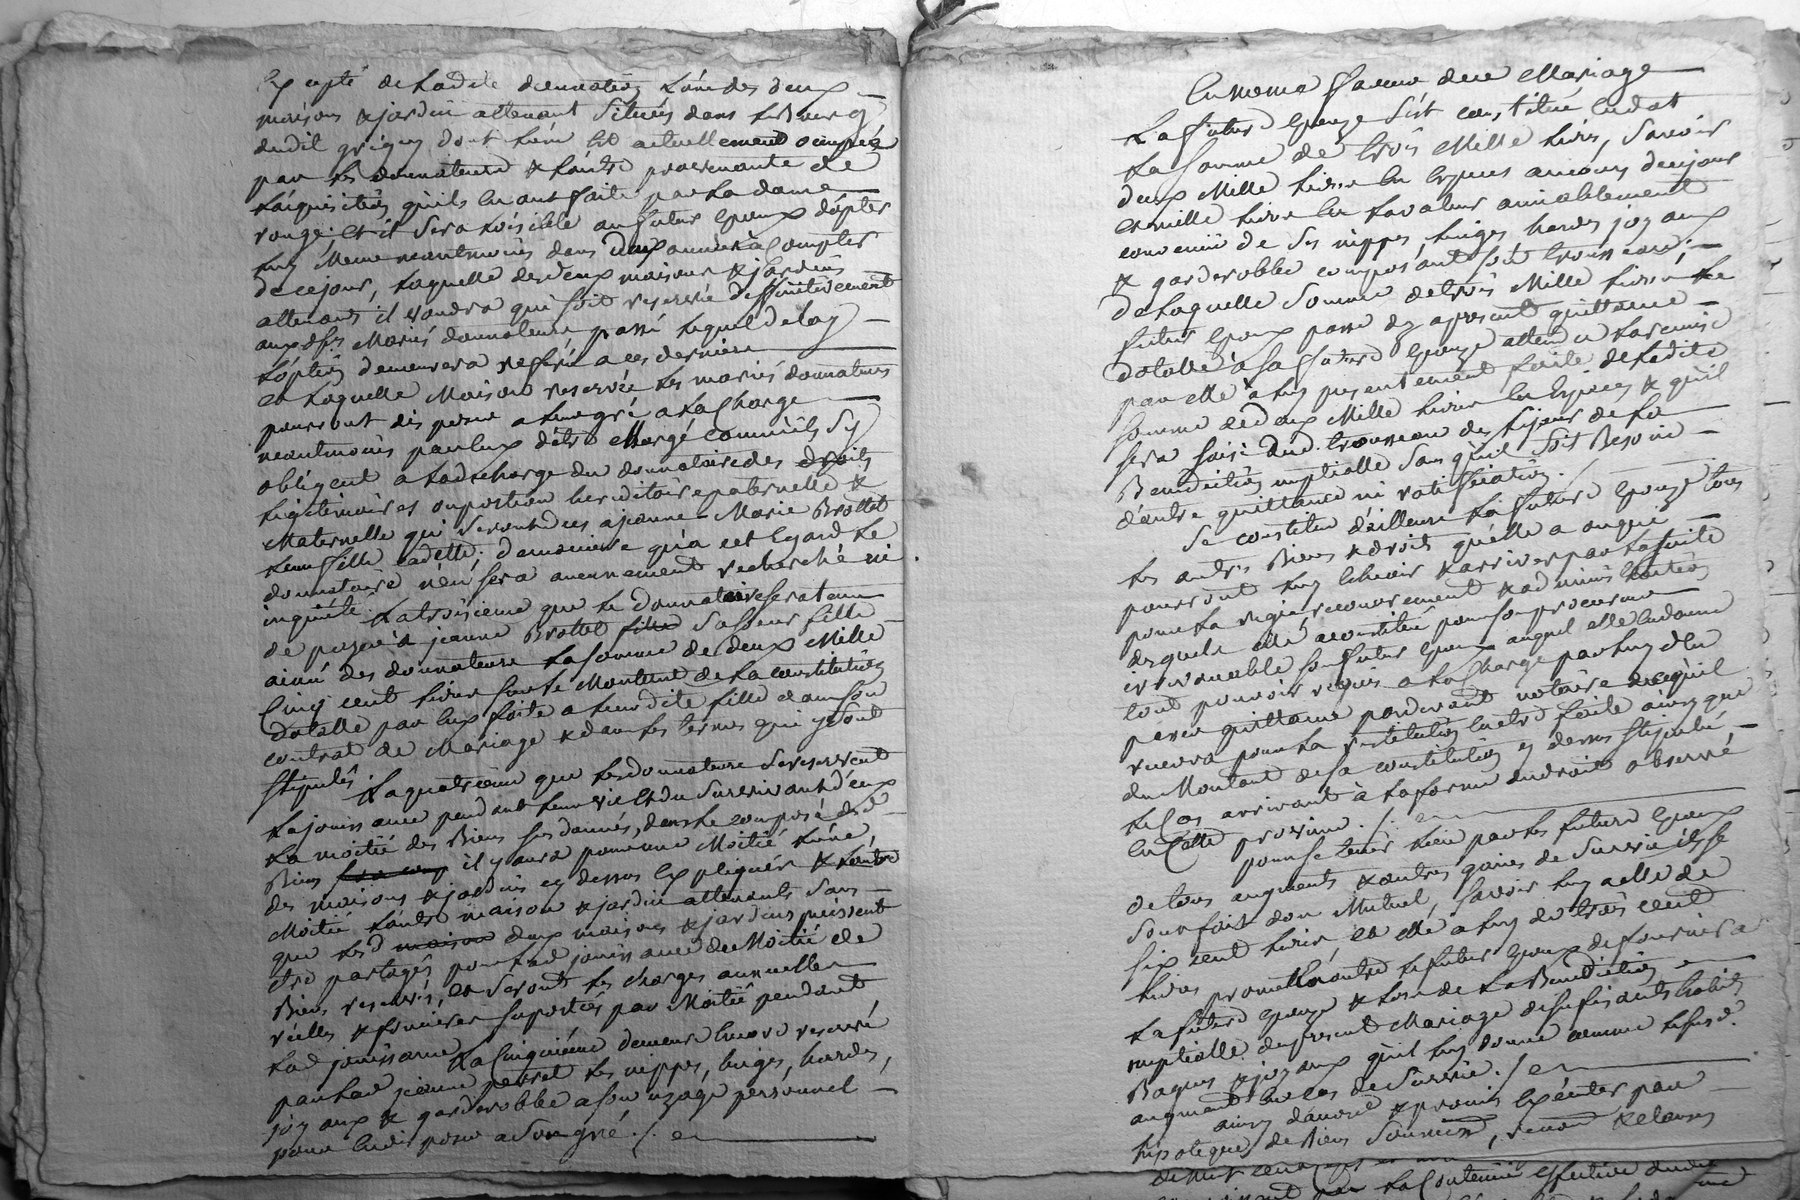 Excepté de Ladite donnation L'une des deux
maisons & jardin attenant Situés dans Le Bourg
dudit grigny dont L'une Est actuellement occupée
par Les donnateurs & L'autre provenante de
L'acquisition qu'ils En ont faite par La dame
rouge: et il Sera Loisible au futur Epoux d'opter
Luy même neantmoins dans deux années à Compter
de ce jour, Laquelle des deux maisons & jardins
attenants il voudra qui soit reservée deffinitivement
auxdts Mariés donnateurs, passé Lequel delay
L'option demeurera referée a ces derniers
et Laquelle Maison reservée Les mariés donnateurs
pourront disposer a Leur gré a La Charge
neantmoins par Eux d'être Chargé comme ils S'y
obligent a La decharge du donnataire des droits
Legitimaires ou portion hereditaire paternelle &
Maternelle qui Seront dues a jeanne-Marie Brottet
Leur fille Cadette; de maniere qu'a cet Egard Le
donnataire n'en sera aucunement recherché ni
inquieté. La troisieme que Le donnataire sera tenu
de payer à jeanne Brottet Sa soeur fille
ainée des donnateurs La somme de deux Mille
Cinq cent Livres pour Le Montant de La constitution
Dotalle par Eux faite a Leur dite fille dans son
contrat de Mariage & dans Les termes qui y sont
Stipulés. La quatrieme que Les donnateurs Se reservent
La jouissance pendant Leur vie Et du Survivant d'eux
La moitié des Biens Sus donnés, dans Le composé desd.
Biens il y aura pour une Moitié L'une
des maisons & jardins cy dessus Expliquée & L'autre
Moitié L'autre maison & jardin attenants Sans
que Lesd. deux maisons & jardins puissent
être partagés pour Lad. jouissance de Moitié de
Biens reservés, et Seront Les charges annuelles
réelles & foncieres Suportées par Moitié pendant
Lad jouissance. La Cinquieme demeure Encore reservé
par Lad. jeanne perret Les nippes, Linges, hardes,
joyaux & garderobbe a Son uzage personnel
pour En disposer a Son gré ./.
En meme faveur dud Mariage
La future Epouze S'est constituée En dot
La somme de trois Mille Livres, Savoir
deux Mille Livres En Especes au cours de ce jour
et mille Livres En La valeur amiablement
convenue de Ses nippes, Linges hardes joyaux
& garderobbe composant son trousseau;
de Laquelle somme de trois Mille Livres Le
futur Epoux passe dez a present quittance
dotalle à Sa future Epouze attendu La remise
par elle à Luy presentement faite de Ladite
somme de deux Mille Livres En Especes & qu'il
sera Saisi dud. trousseau dez Le jour de La
Benediction nuptialle sans qu'il soit Besoin
d'autre quittance ni ratiffication ./
Se constitue d'ailleurs La future Epouze tous
Les autres Biens & droits qu'elle a ou qui
pourront Luy Echeoir & arriver par La suite
pour La regie, recouvrement & administration
desquels elle a constitué pour son procureur
irrevocable son futur Epoux auquel elle En donne
tout pouvoir requis a La Charge par Luy d'En
passer quittance pardevant notaire de ce qu'il
recevra pour La restitution En etre faite ainsy que
du Montant de Sa constitution cy dessus Stipulée
Le Cas arrivant à La forme du droit observé
En Cette province ./.
pour Se tenir Lieu par Les futurs Epoux
de tous augments & autres gains de Survie ils se
Sont fait don Mutuel, Savoir Luy a elle de
Six cent Livres et elle a Luy de trois cent
Livres
promet En outre Le futur Epoux de fournir a
La future Epouze & Lors de La Benediction
nuptialle du present Mariage de suffisants habits
Bagues & joyaux qu'il Luy donne comme Le susd.
augment En cas de Survie ./.
ainsy d'accord & promis Executer par
hipoteques de Biens Soumission, renon & clauses